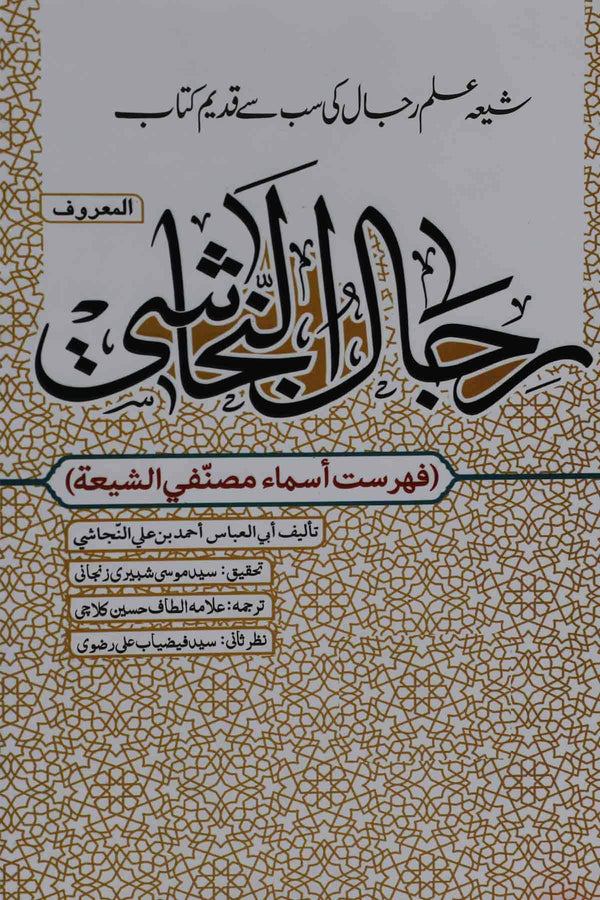 شیعہ علم رجال کی سب سے قدیم کتاب
المعروف
رجال النّجاشي
(فهرست أسماء مصنّفي الشيعة)
تأليف أبي العباس أحمد بن علي النّجاشي
تحقیق: سید موسی شبیری زنجانی
ترجمہ: علامہ الطاف حسین کلاچی
نظر ثانی: سید فیضیاب علی رضوی